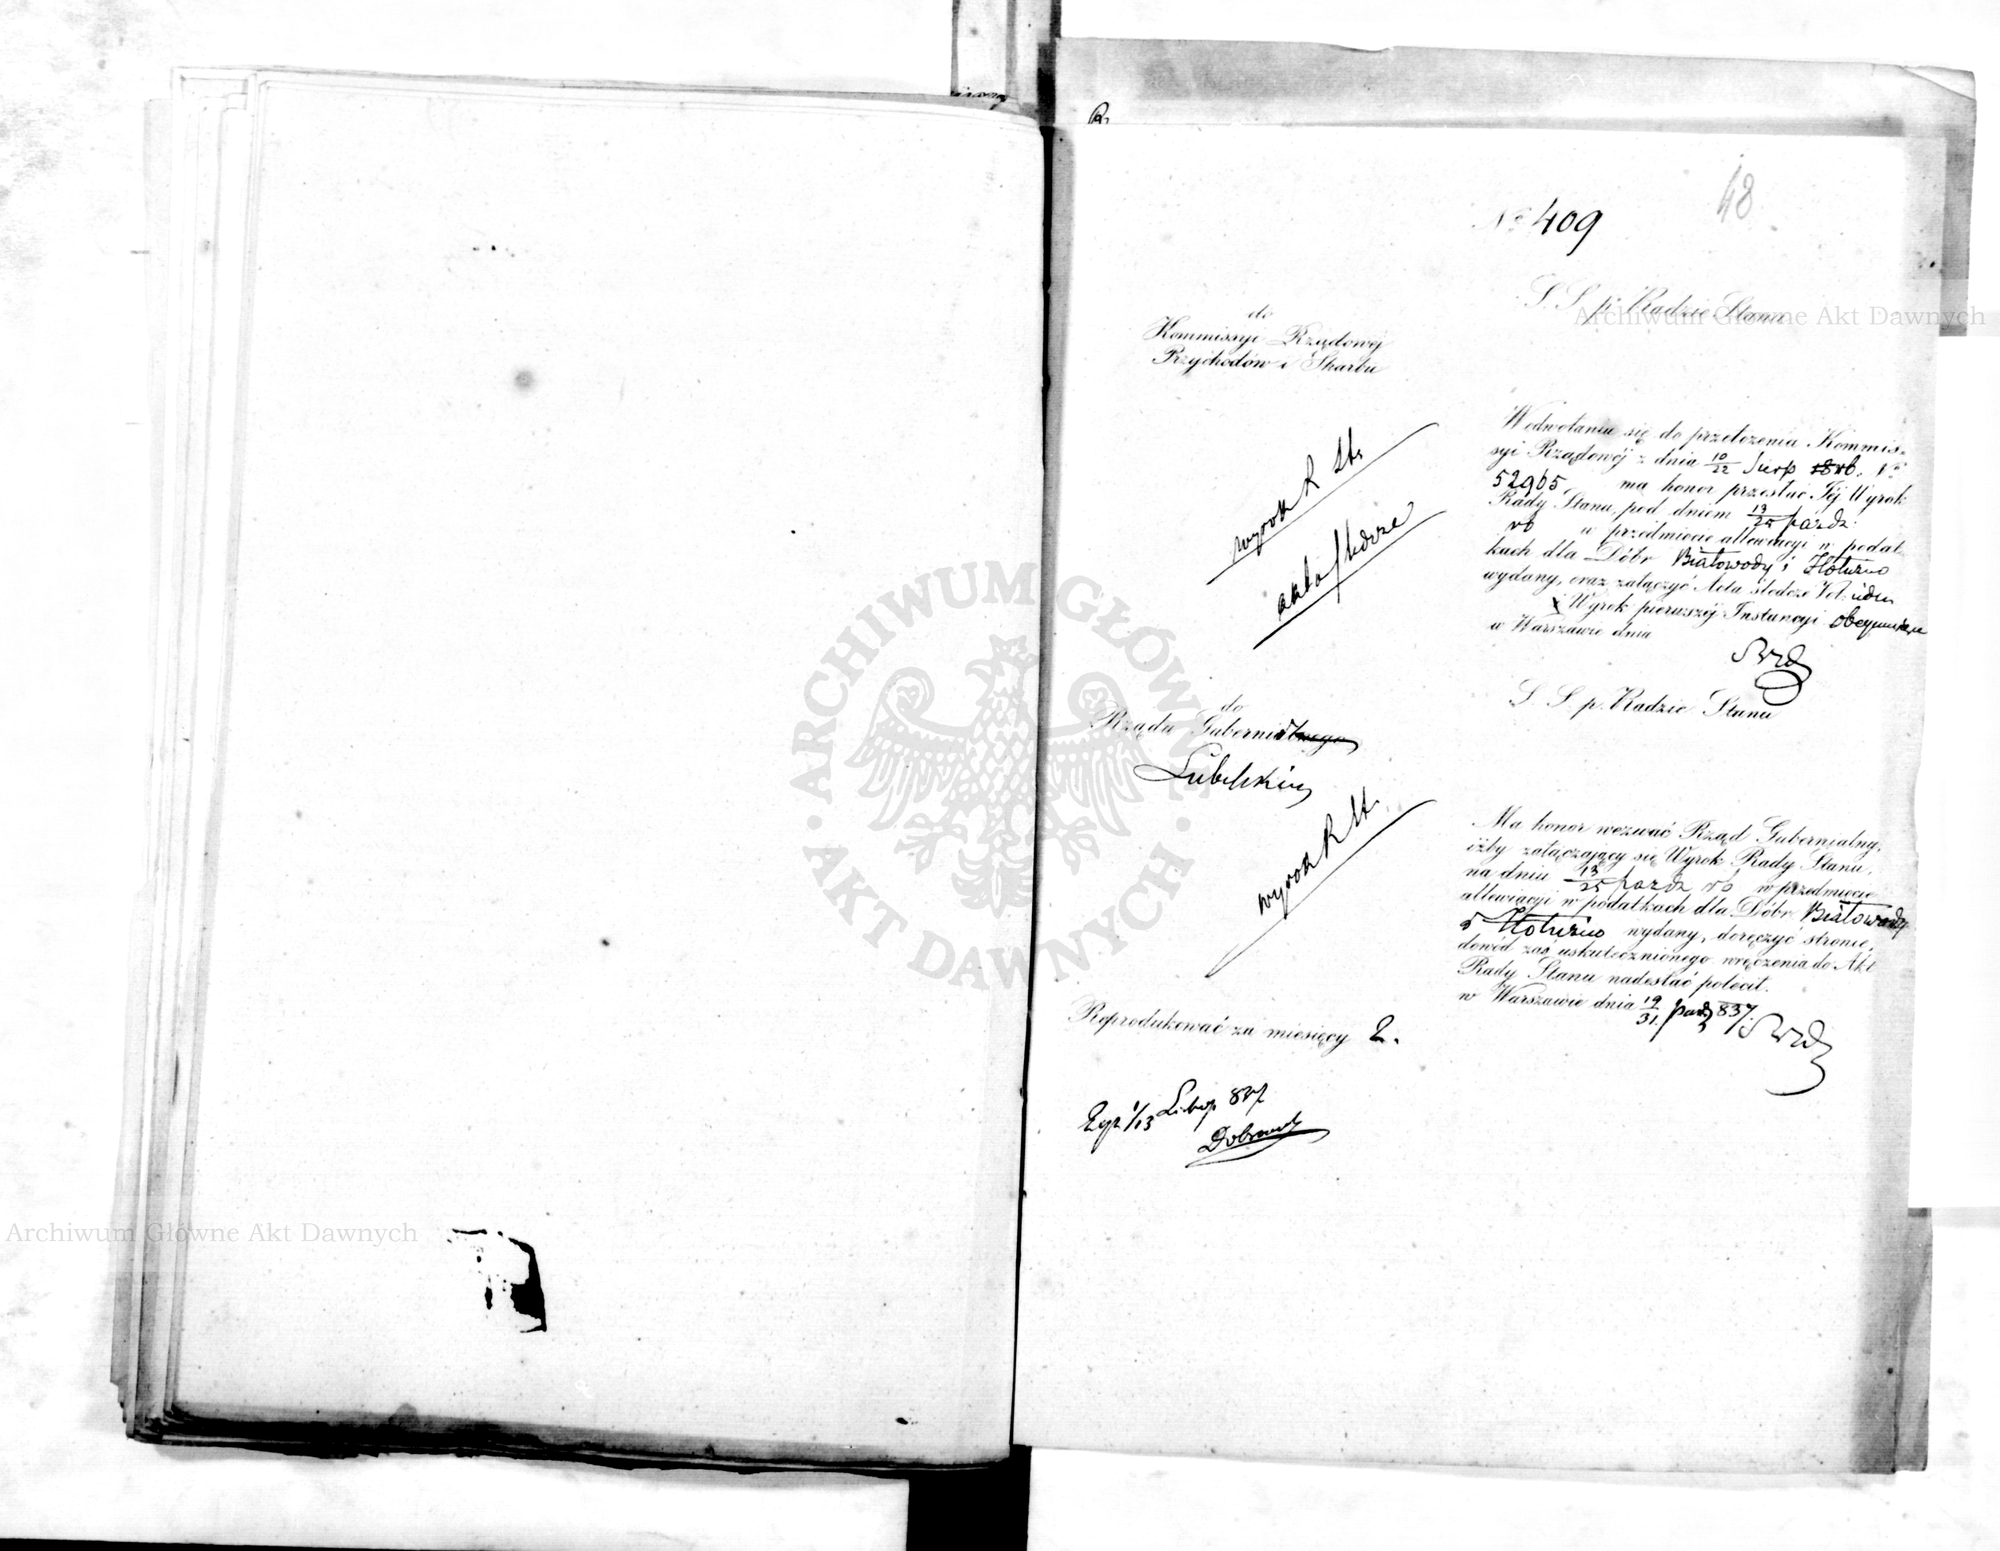 48
№ 409
S. S. p. Radzie Stanu
do
Kommissyi Rządowéj
Przychodów i Skarbu
W odwołaniu się do przełożenia Kommis-
syi Rządowéj z dnia 10/22 Sierp 18 rb. N°
52965 ma honor przesłać Jéj Wyrok
Rady Stanu, pod dniem 13/25 paźdz:
rb w przedmiocie allewiacyi w podat-
kach dla Dóbr Białowody i Hoturno
wydany, oraz załączyć Acta śledcze Vol:
i Wyrok pierwszéj Instancyi obeymujące
w Warszawie dnia
wyrok R St.
akta śledcze
S. S. p. Radzie Stanu
do
Rządu Gubernialnego
Lubelskiego
Ma honor wezwać Rząd Gubernialny,
iżby załączający się Wyrok Rady Stanu,
na dniu 13/25 paźdz rb, w przedmiocie
allewiacyi w podatkach dla Dóbr Białowody
i Hoturno wydany, doręczyć stronie,
dowód zaś uskutecznionego wręczenia do Akt
Rady Stanu nadesłać polecił.
w Warszawie dnia 19/31 paźdz 837.
wyrok R St.
Reprodukować za miesięcy 2.
1/13 Listop 837
Archiwum Główne Akt Dawnych
Archiwum Główne Akt Dawnych
ARCHIWUM GŁÓWNE · AKT DAWNYCH ·